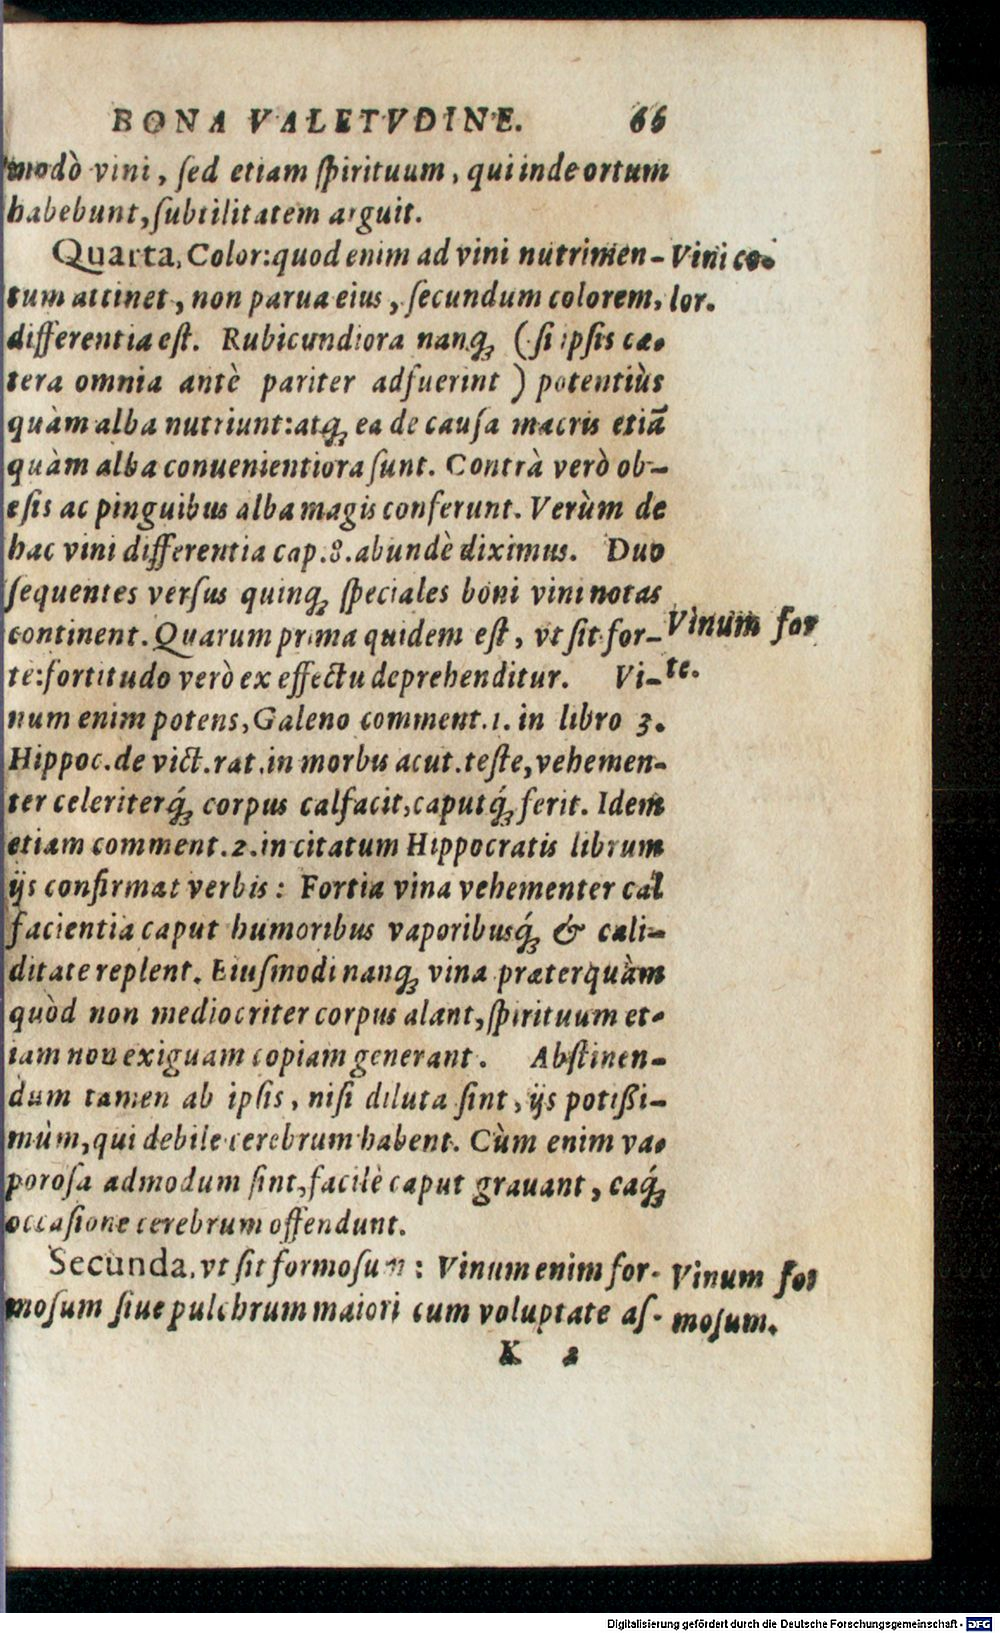 BONA VALETVDINE. 66
modò vini, ſed etiam ſpirituum, qui inde ortum
habebunt, ſubtilitatem arguit.
Quarta, Color: quod enim ad vini nutrimen-
Vini co-
tum attinet, non parua eius, ſecundum colorem,
lor.
differentia eſt. Rubicundiora nanqꝫ (ſi ipſis cæ-
tera omnia antè pariter adfuerint) potentiùs
quàm alba nutriunt: atqꝫ ea de cauſa macris etiã
quàm alba conuenientiora ſunt. Contrà verò ob-
eſis ac pinguibus alba magis conferunt. Verùm de
hac vini differentia cap. 8. abundè diximus. Duo
ſequentes verſus quinqꝫ ſpeciales boni vini notas
continent. Quarum prima quidem eſt, vt ſit for-
Vinum for
te: fortitudo verò ex effectu deprehenditur. Vi-
te.
num enim potens, Galeno comment. 1. in libro 3.
Hippoc. de vict. rat. in morbis acut. teſte, vehemen-
ter celeriterq́ꝫ corpus calfacit, caputq́ꝫ ferit. Idem
etiam comment. 2. in citatum Hippocratis librum
ijs confirmat verbis: Fortia vina vehementer cal
facientia caput humoribus vaporibusq́ꝫ & cali-
ditate replent. Eiuſmodi nanqꝫ vina præterquàm
quòd non mediocriter corpus alant, ſpirituum et-
iam non exiguam copiam generant. Abſtinen-
dum tamen ab ipſis, niſi diluta ſint, ijs potißi-
mùm, qui debile cerebrum habent. Cùm enim va-
poroſa admodum ſint, facilè caput grauant, eaq́ꝫ
occaſione cerebrum offendunt.
Secunda, vt ſit formoſum: Vinum enim for-
Vinum for
moſum ſiue pulchrum maiori cum voluptate aſ-
moſum.
K 2
Digitalisierung gefördert durch die Deutsche Forschungsgemeinschaft - DFG